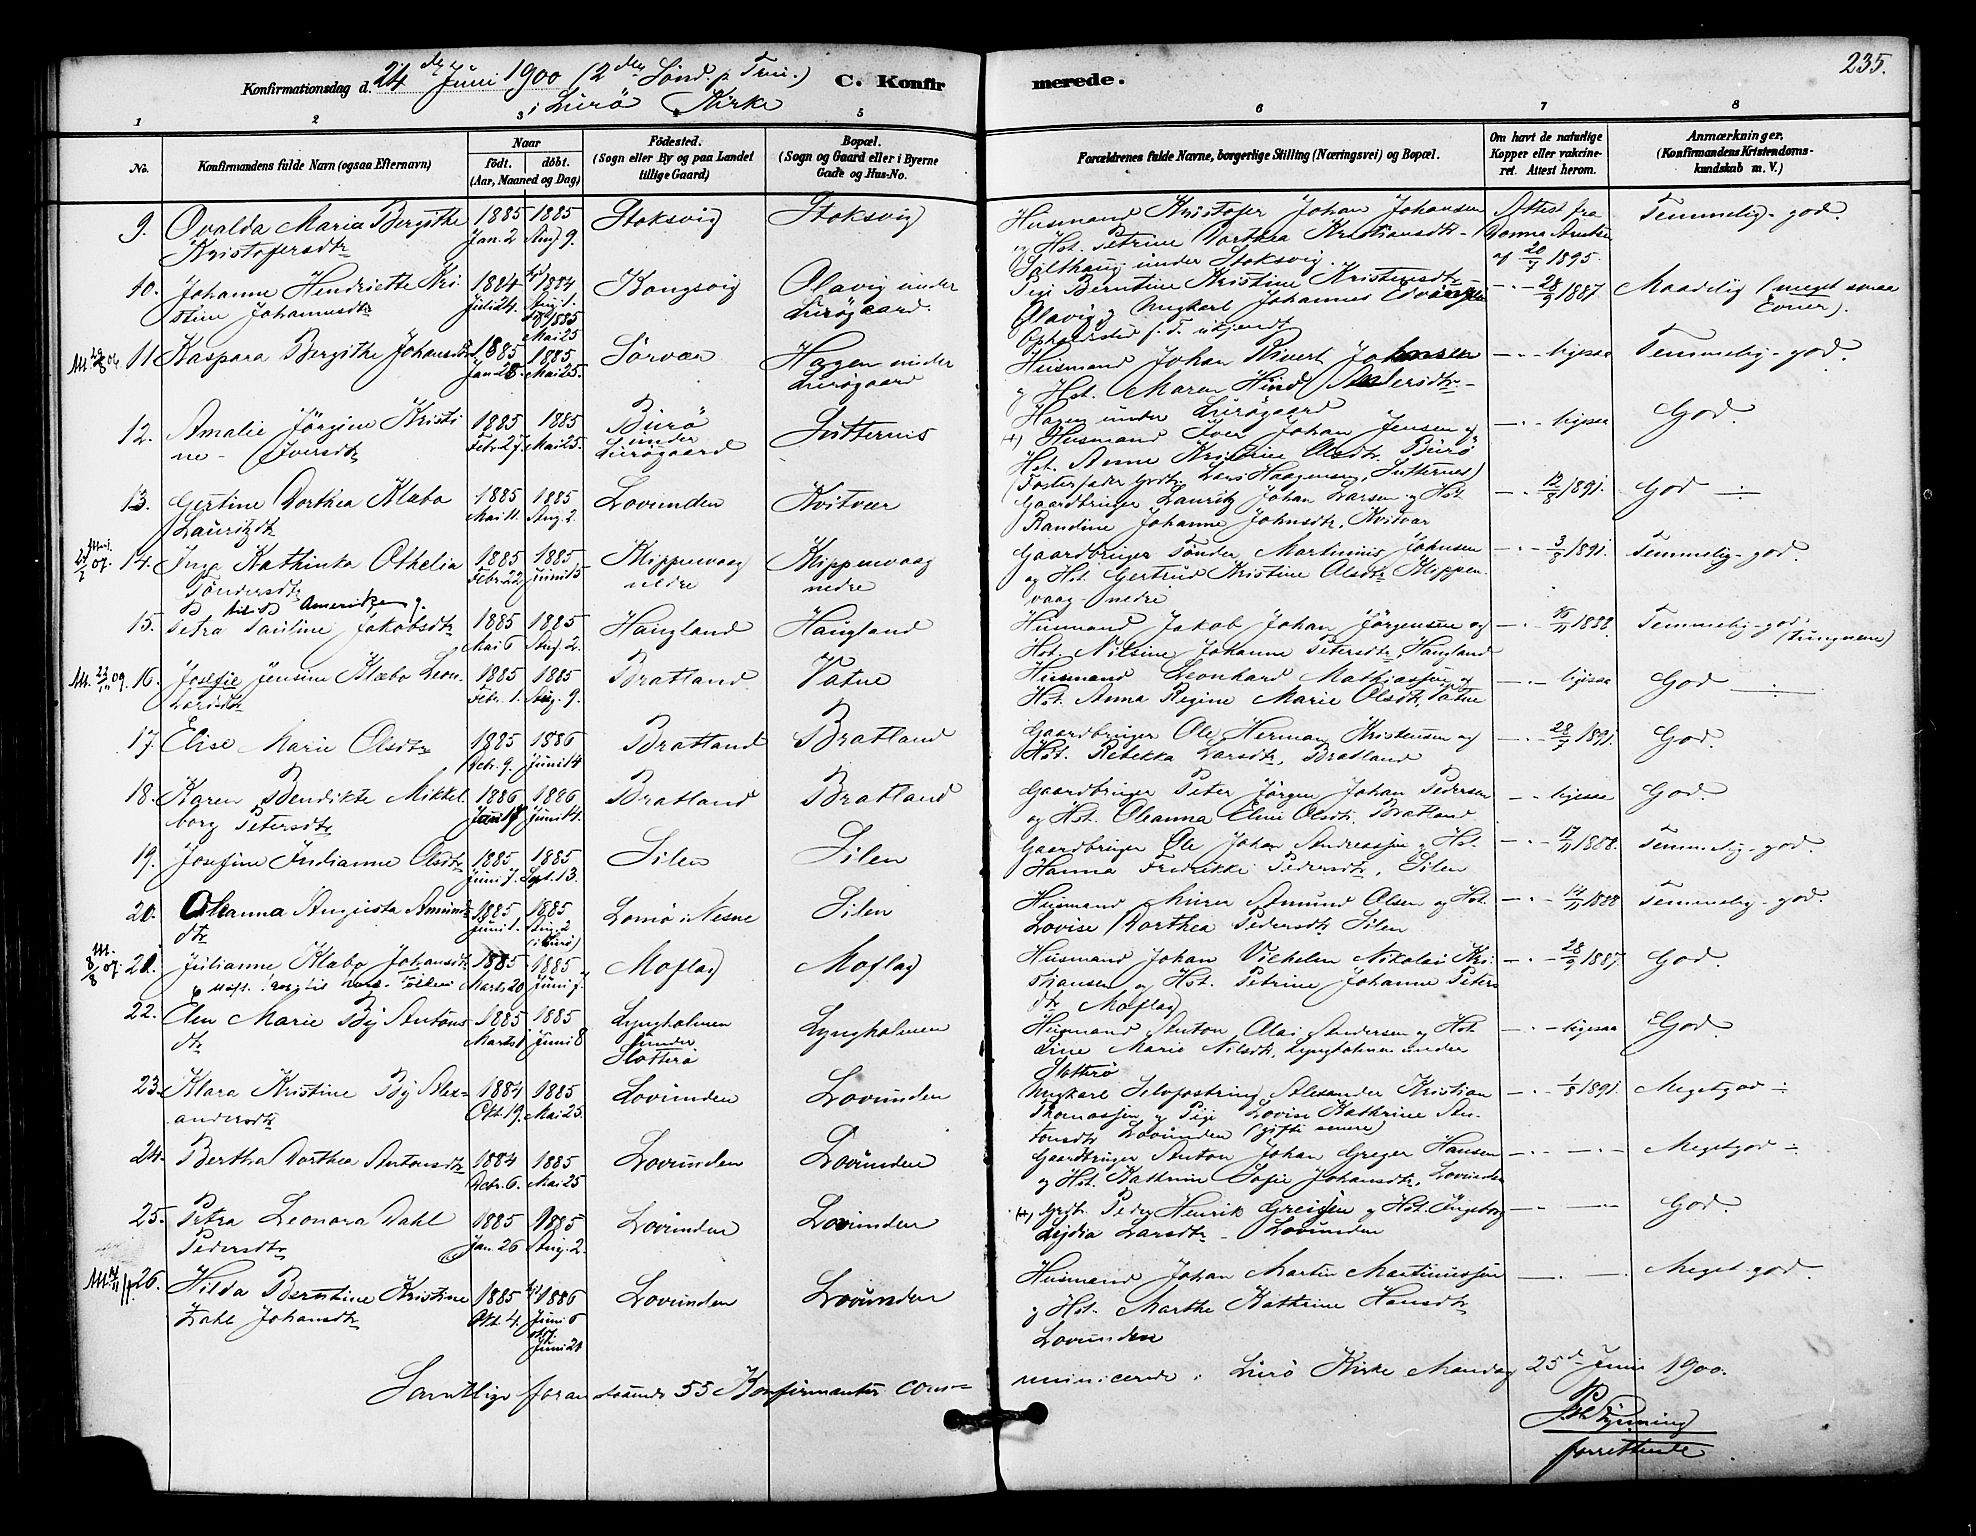 235.
Konfirmationsdag d. 24de Juni 1900 (2den Sønd. p. Trin.) C. Konfirmerede.
i Lurø Kirke
1 2 3 4 5 6 7 8
No. Konfirmandens fulde Navn (ogsaa Efternavn) Naar født. døbt. (Aar, Maaned og Dag) Fødested. (Sogn eller By og paa Landet tillige Gaard) Bopæl. (Sogn og Gaard eller i Byerne Gade og Hus-No. Forældrenes fulde Navne, borgerlige Stilling (Næringsvei) og Bopæl. Om havt de naturlige Kopper eller vakcineret. Attest herom. Anmærkninger. (Konfirmandens Kristendomskundskab m. V.)
9. Ovalda Maria Bergithe Kristofersdtr 1885 Jan. 2 1885 Aug. 9. Stoksvig Stoksvig Husmand Kristofer Johan Johansen og Hst. Petrine Dorthea Kristiansdtr Solthaug under Stoksvig. Attest fra Dønna af 20/7 1895. Temmelig-god.
10. Johanne Henriette Kristine Johannesdtr 1884 Juli 24. 1884 Aug. 1. 1885 Mai 25 Kongsvig Olavig under Lurøgaard. Pige Berntine Kristine Kristensdtr Olavig og Ungkarl Johannes Opholdssted f. T. ukjendt - 28/9 1887 Maadelig (meget smaa Evner).
11. Kaspara Bergithe Johansdtr 1885 Jan. 28. 1885 Mai 25. Sørvær Hagen under Lurøgaard Husmand Johan Johansen og Hst. Maren Andersdtr Hagen under Lurøgaard - ligesaa Temmelig-god.
12. Amalie Jørgine Kristine Iversdtr 1885 Febr. 27 1885 Mai 25. Burø under Lurøgaard Sutternes (+) Husmand Iver Johan Jensen og Hst. Anne Kristine Olsdtr Burø (Fosterfader Lars Haagensen, Sutternes) - ligesaa God.
13. Gertine Dorthea Klæbo Lauritzdtr 1885 Mai 11. 1885 Aug. 2. Lovunden Kvitvær Gaardbruger Lauritz Johan Larsen og Hst. Randine Johanne Johnsdtr, Kvitvær - 12/8 1891. God
14. Inga Kathinka Othelia Tøndersdtr 1885 Febr. 22 1885 Juni 15 Klippenvaag nedre Klippenvaag nedre Gaardbruger Tønder Martinius Johnsen og Hst. Gertrud Kristine Olsdtr Klippenvaag nedre - 3/8 1891. Temmelig-god.
til Amerika
15. Petra Pauline Jakobsdtr 1885 Mai 6 1885 Aug. 2. Haugland Haugland Husmand Jakob Johan Jørgensen og Hst. Nilsine Johanne Petersdtr, Haugland - 1888. Temmelig-god (tungnem)
M. 16. Josefie Jensine Klæbo Leonhardsdtr 1885 Febr. 1. 1885 Aug. 9. Bratland Vatne Husmand Leonhard Mathiassen og Hst. Anna Regine Marie Olsdtr, Vatne - ligesaa God
17. Elise Marie Olsdtr 1885 Dcbr. 9. 1886 Juni 14 Bratland Bratland Gaardbruger Ole Herman Kristensen og Hst. Rebekka Larsdtr, Bratland - 28/7 1891. God.
18. Karen Bendikte Mikkelborg Petersdtr 1886 1886 Juni 14. Bratland Bratland Gaardbruger Peter Jørgen Johan Pedersen og Hst. Oleanna Eline Olsdtr, Bratland - ligesaa God.
19. Josefine Julianne Olsdtr 1885 Juni 7. 1885 Sept. 13. Silen Silen Gaardbruger Ole Johan Andreassen og Hst. Hanna Fredrikke Pedersdtr, Silen - 1888. Temmelig-god.
20. Oleanna Augusta Amundsdtr 1885 Juni 1. 1885 Aug. 2 (i Lurø) Lomø i Nesne Silen Husmand Murer Amund Olsen og Hst. Lovise Dorthea Pedersdtr Silen - 1888 Temmelig-god.
21. Julianne Klæbo Johansdtr 1885 Marts 20 1885 Juni 7 Moflag Moflag Husmand Johan Vilhelm Nikolai Kristiansen og Hst. Petrine Johanne Petersdtr Moflag - 28/9 1887. God.
22. Elen Marie Bÿ Antonsdtr 1885 Marts 1 1885 Juni 8 Lyngholmen under Slotterø Lyngholmen Husmand Anton Olai Andersen og Hst Line Marie Nilsdtr, Lyngholmen under Slotterø - ligesaa God.
23. Klara Kristine Bÿ Alexandersdtr 1884 Okt. 19. 1885 Mai 25. Lovunden Lovunden Ungkarl Alexander Kristian Thomassen og Pige Lovise Kathrine Antonsdtr Lovunden (gifte senere) - 1/8 1891. Megetgod
24. Bertha Dorthea Antonsdtr 1884 Dcbr. 6. 1885 Mai 25 Lovunden Lovunden Gaardbruger Anton Johan Greger Hansen og Hst. Kathrine Sofie Johansdtr, Lovunden Megetgod
25. Petra Leonora Dahl Pedersdtr 1885 Jan. 26 1885 Aug. 2. Lovunden Lovunden (+) Peder Henrik Greisen og Hst. Ingeborg Lydia Larsdtr - Lovunden God.
26. Hilda Berntine Kristine Dahl Johansdtr 1885 Okt. 4. 1886 Juni 6 Juni 20 Lovunden Lovunden Husmand Johan Martin Martinussen og Hst. Marthe Kathrine Hansdtr Lovunden Meget god.
Samtlige foranstaaende 55 Konfirmanter communicerede i Lurø Kirke Mandag 25d Juni 1900.
forrettende